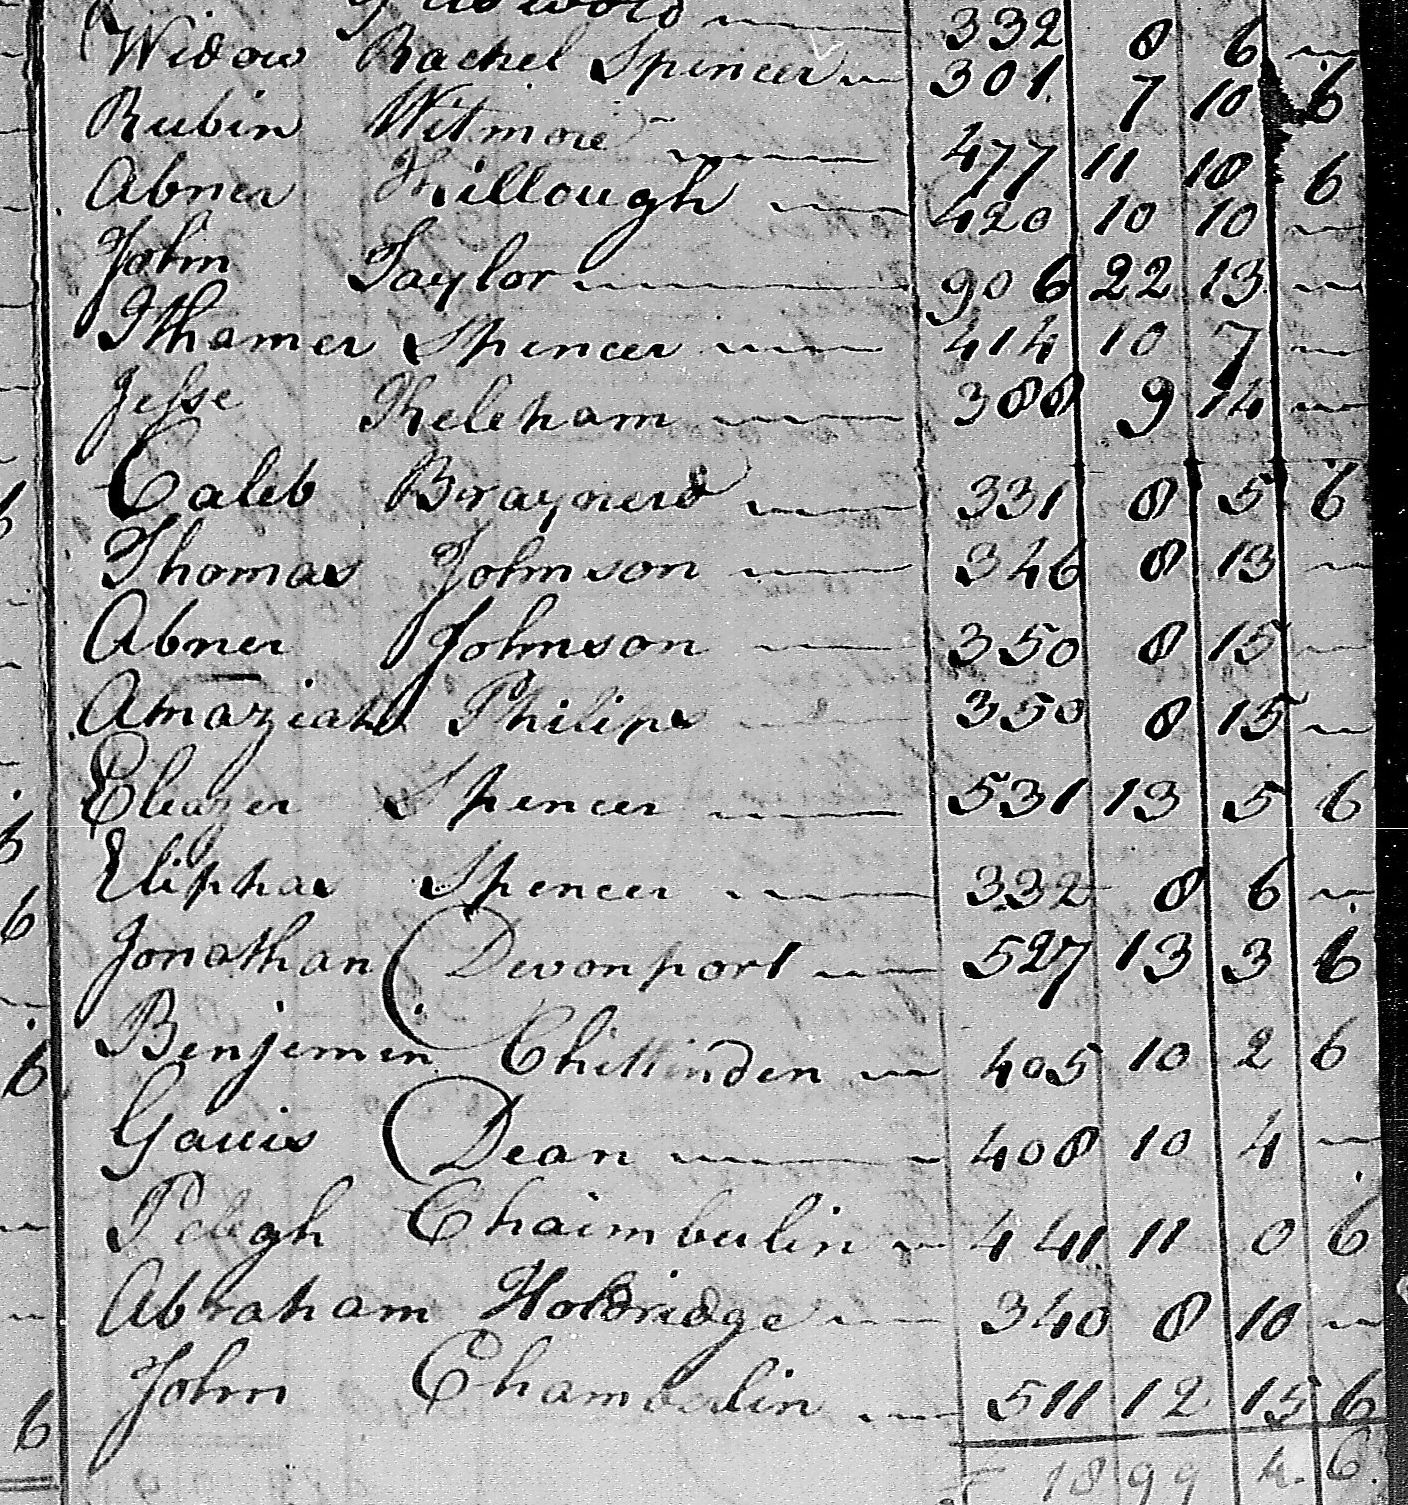 332 8 6 ~
Widow Rachel Spencer ~ 301 7 10 6
Rubin Witmore ~ 477 11 18 6
Abner Killough ~ 420 10 10 ~
John Taylor ~ 906 22 13 ~
Ithamer Spencer ~ 414 10 7 ~
Jesse Keleham ~ 388 9 14 ~
Caleb Braynerd ~ 331 8 5 6
Thomas Johnson ~ 346 8 13 ~
Abner Johnson ~ 350 8 15 ~
Amaziah Philips ~ 350 8 15 ~
Eleazer Spencer ~ 531 13 5 6
Eliphas Spencer ~ 332 8 6 ~
Jonathan Devonport ~ 527 13 3 6
Benjemin Chittinden ~ 405 10 2 6
Gauis Dean ~ 408 10 4 ~
Pelegh Chaimberlin ~ 441 11 0 6
Abraham Holdridge ~ 340 8 10 ~
John Chamberlin ~ 511 12 15 6
1899 4. 6.